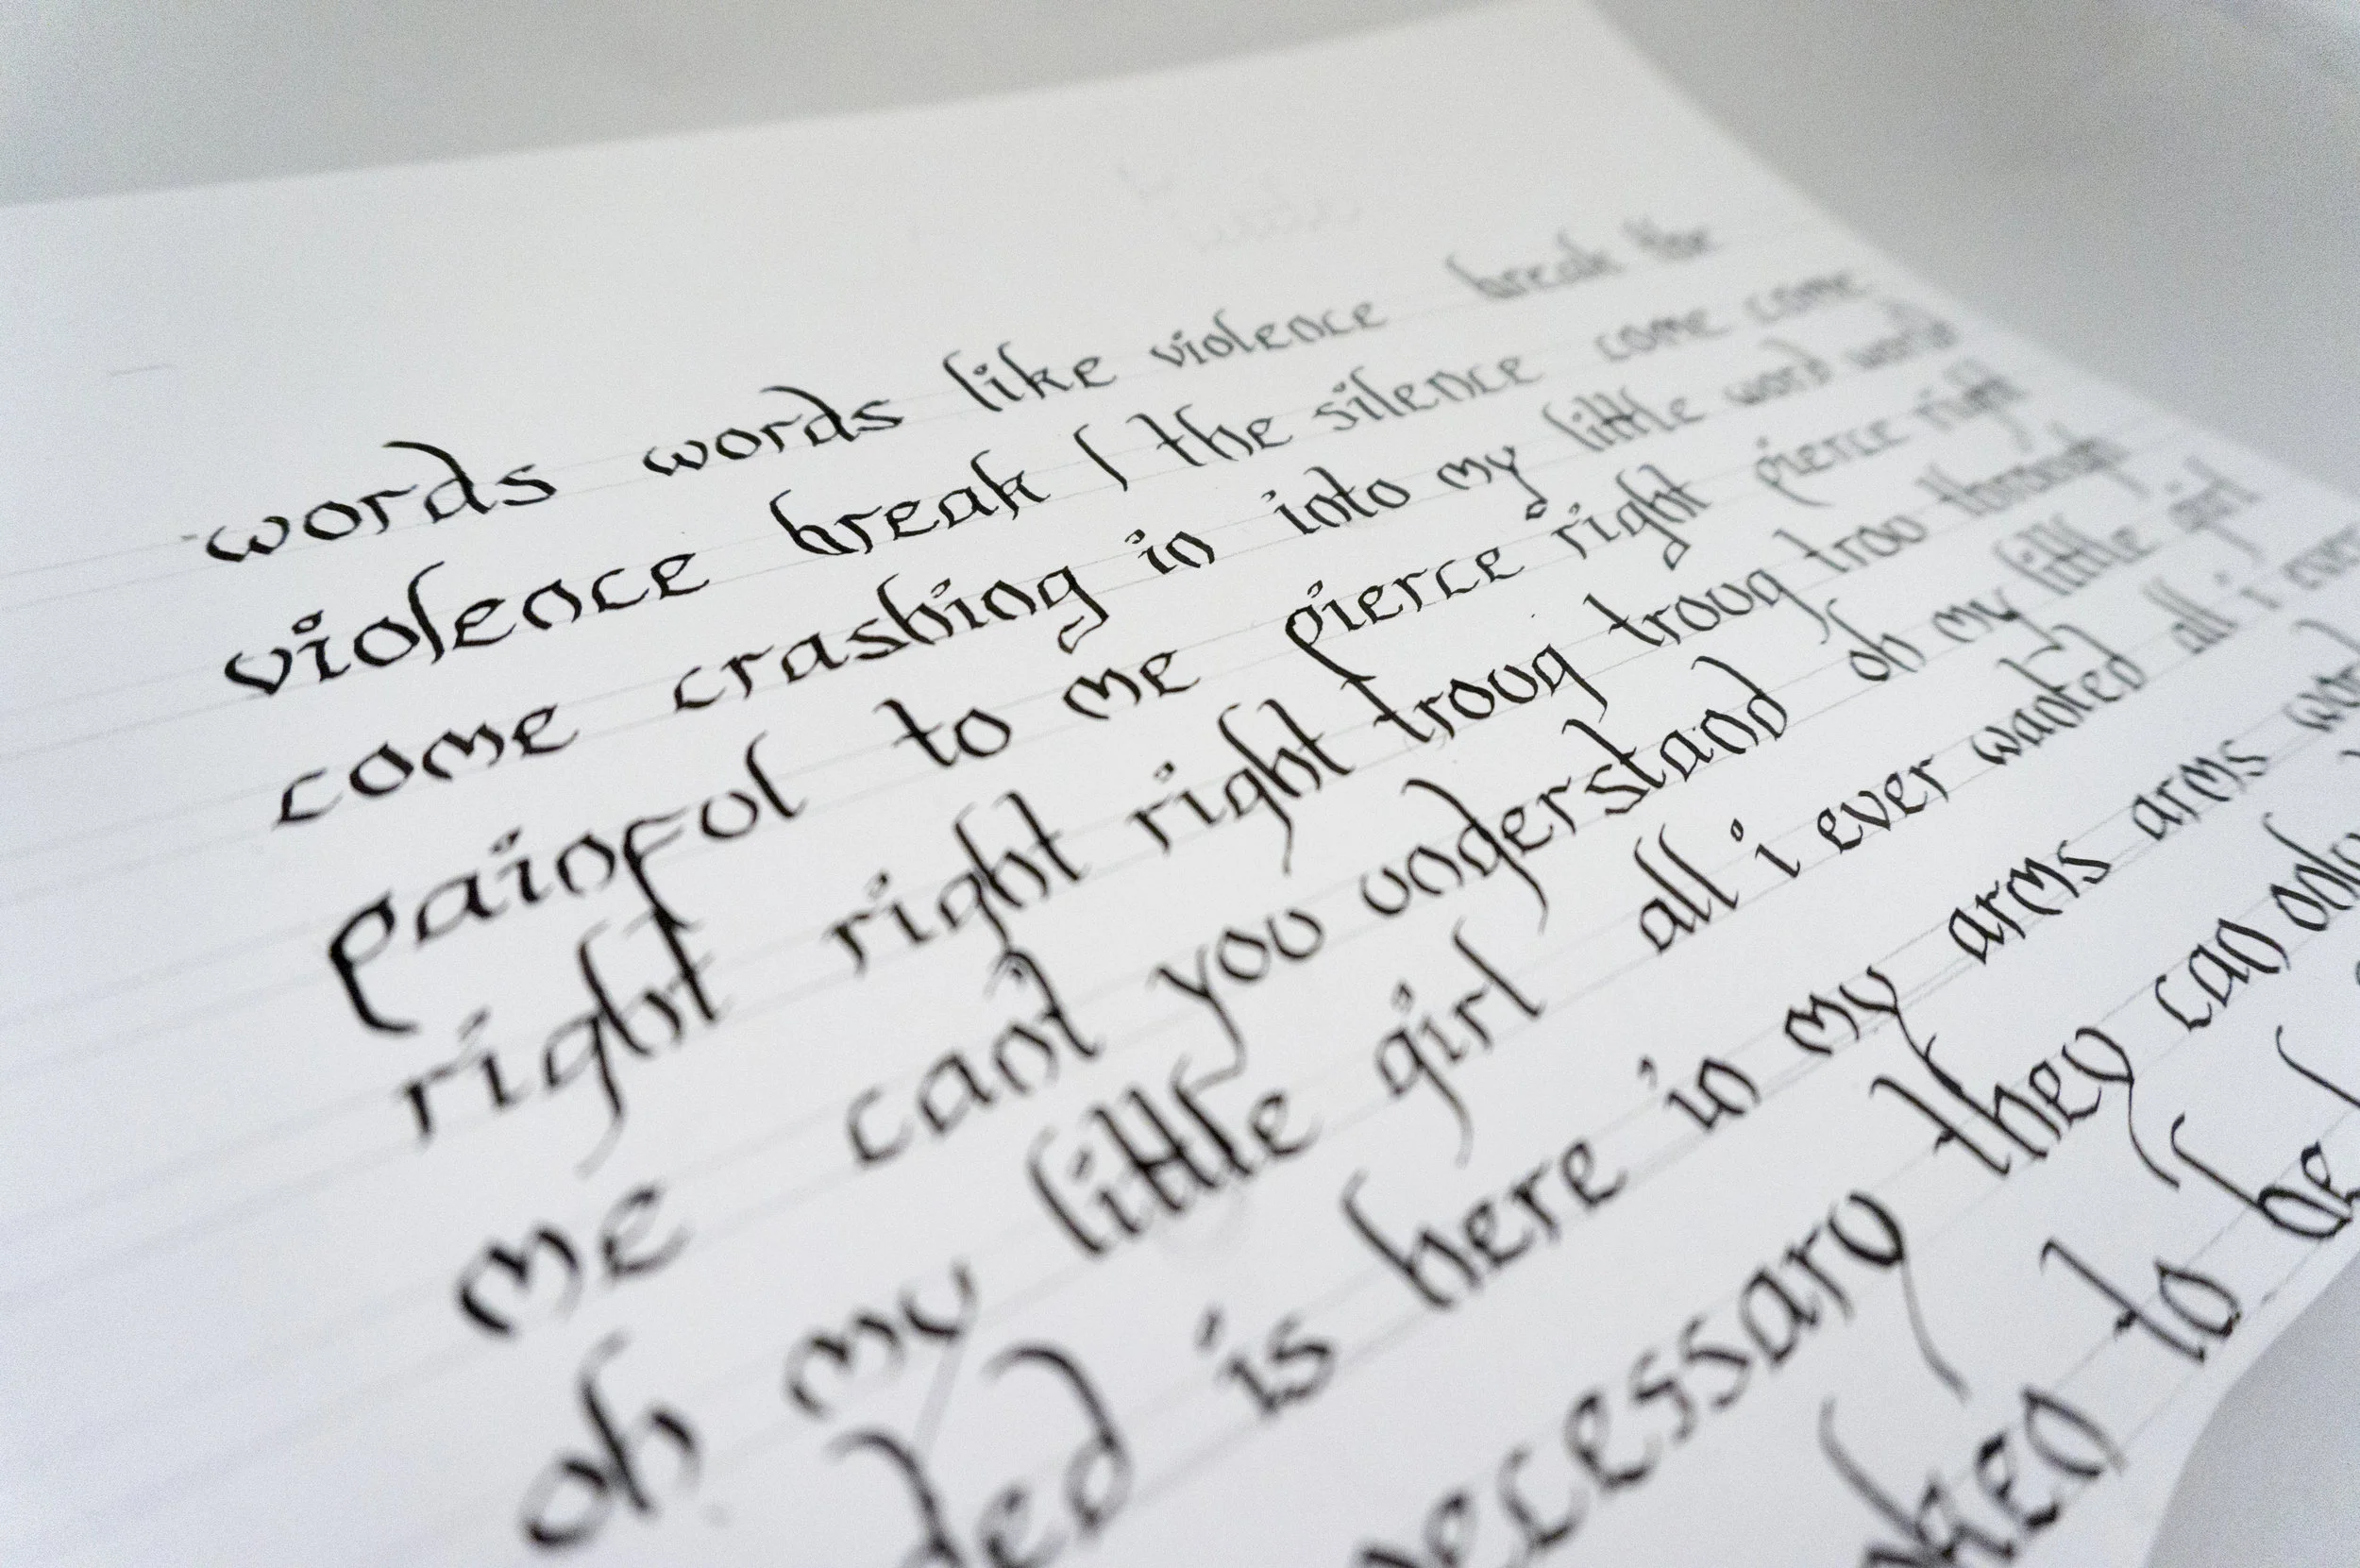 words words like violence break the
violence break / the silence come come
come crashing in into my little word world
painful to me pierce right pierce right
right right right troug troug troo through
me cant you understand oh my little girl
oh my little girl all i ever wanted all i ever
ded is here in my arms arms
ecessary they can only
oken to be